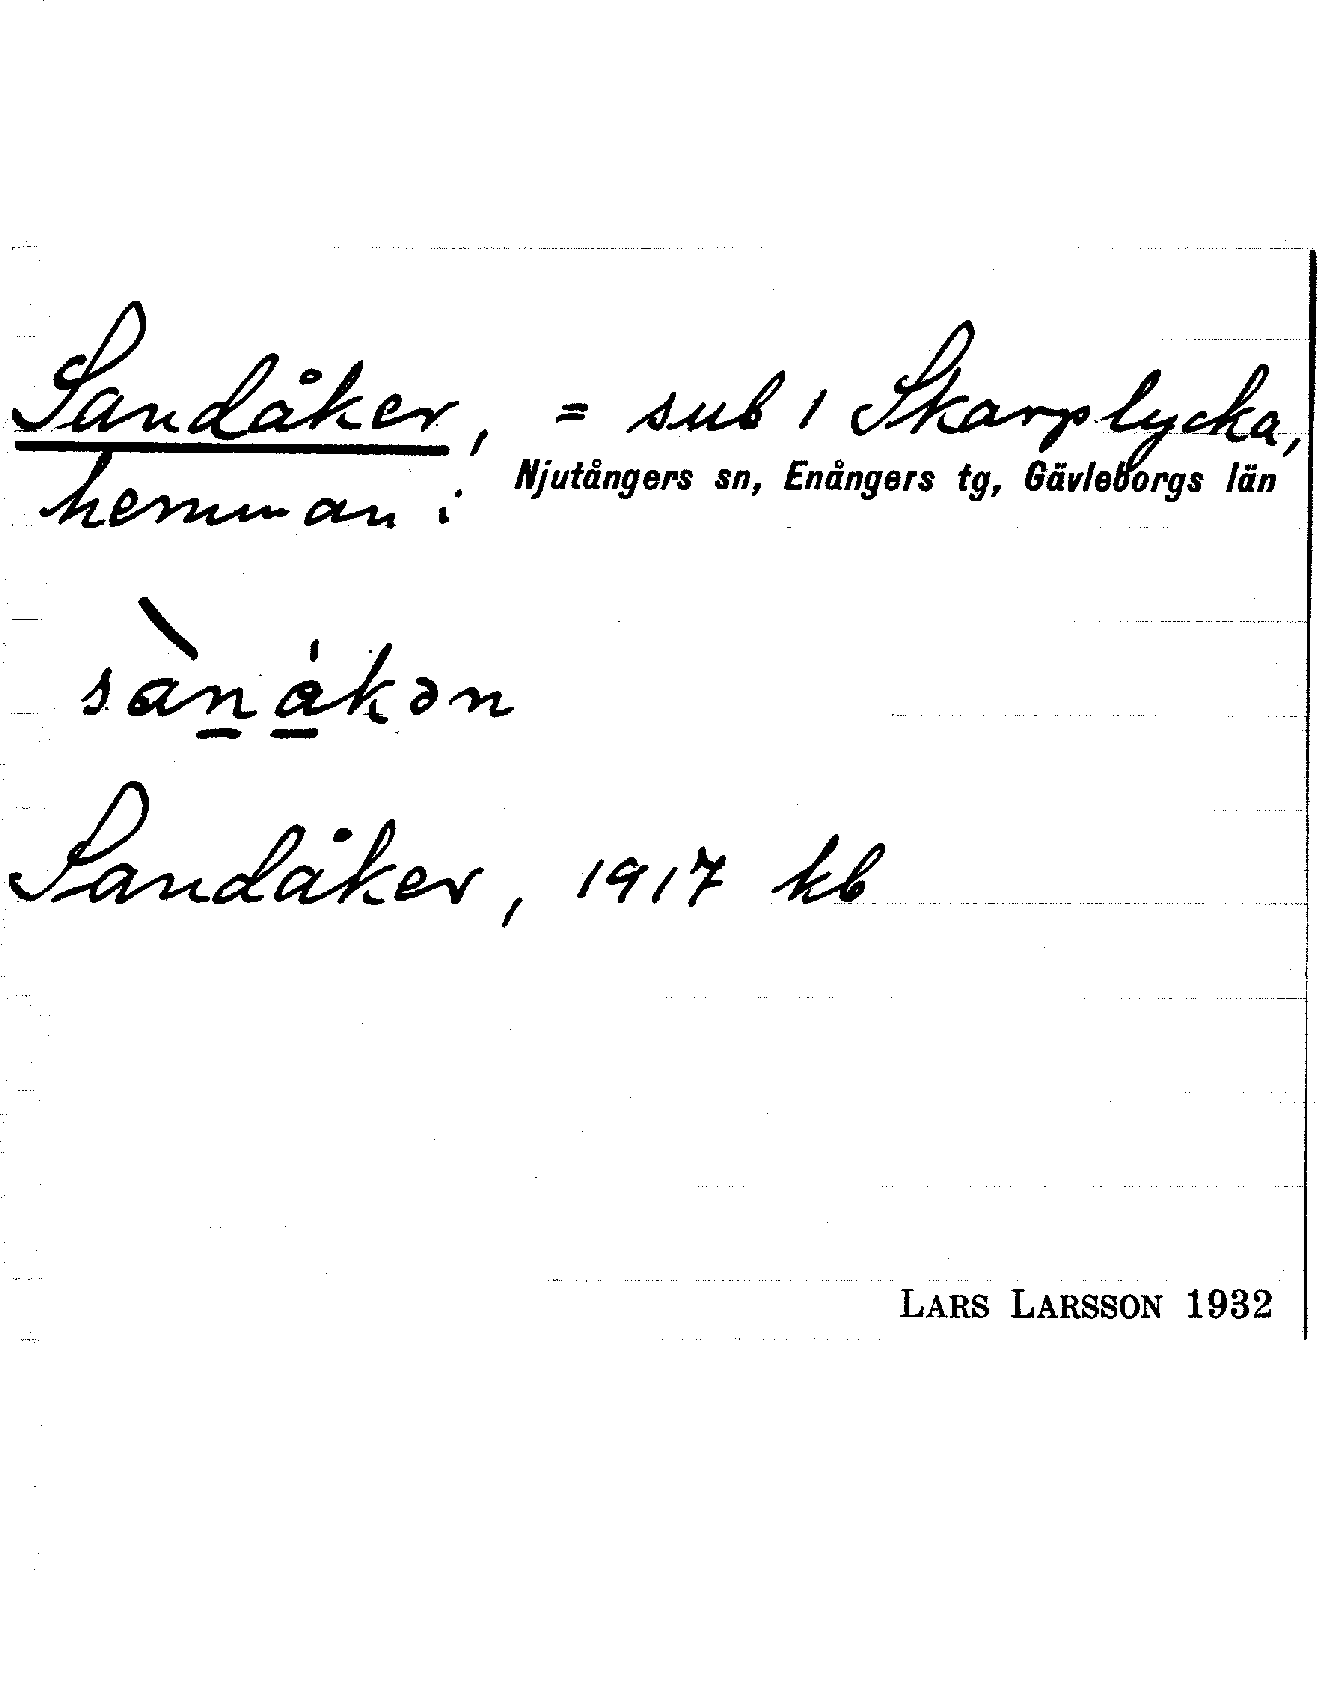 Sandåker, = sub 1 Skarplycka,
hemman i Njutångers sn, Enångers tg, Gävleborgs län
sàn̲å̲kən
Sandåker, 1917 kb
LARS LARSSON 1932